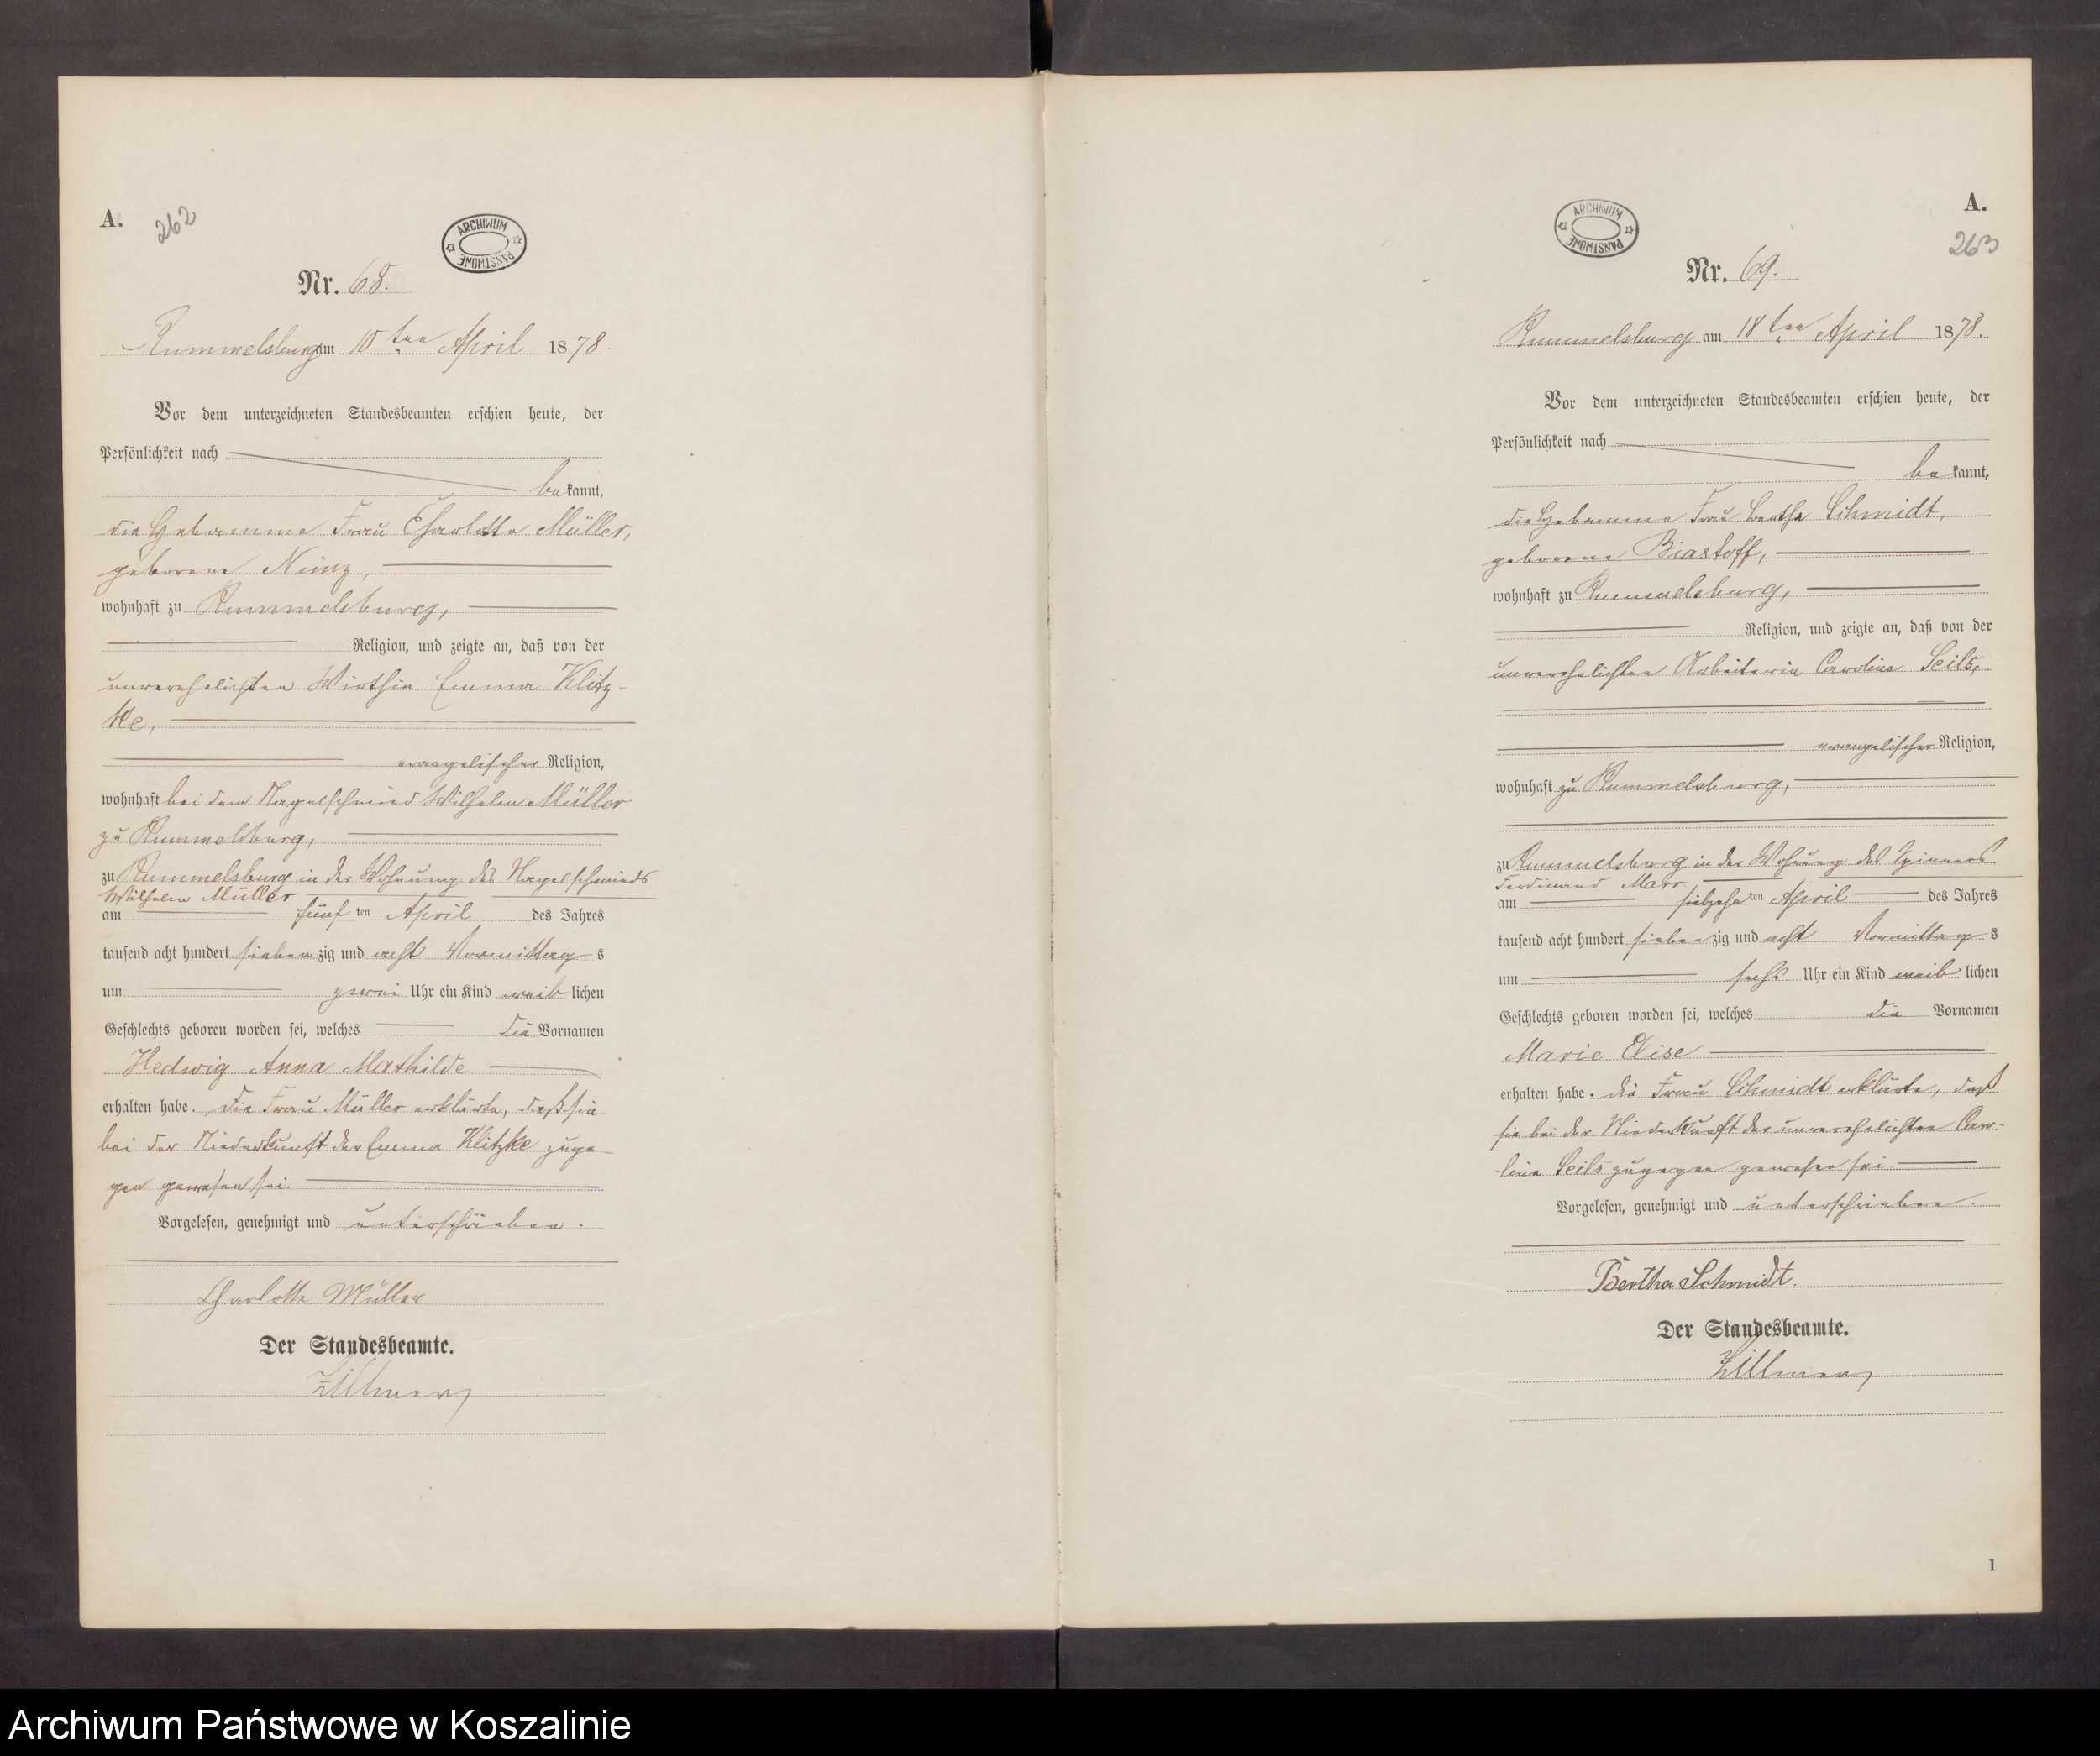 A.
262
ARCHIWUM PAŃSTWOWE
Nr. 68.
Rummelsburg am 10ten April 1878.
Vor dem unterzeichneten Standesbeamten erschien heute, der
Persönlichkeit nach
bekannt,
die Hebamme Frau Charlotte Müller,
geborene Nimz,
wohnhaft zu Rummelsburg,
Religion, und zeigte an, daß von der
unverehelichten Wirthin Emma Klitz-
ke,
evangelischer Religion,
wohnhaft bei dem Nagelschmied Wilhelm Müller
zu Rummelsburg,
zu Rummelsburg in der Wohnung des Nagelschmieds
Wilhelm Müller
am fünften April des Jahres
tausend acht hundert siebenzig und acht Vormittags
um zwei Uhr ein Kind weiblichen
Geschlechts geboren worden sei, welches die Vornamen
Hedwig Anna Mathilde
erhalten habe. Die Frau Müller erklärte, daß sie
bei der Niederkunft der Emma Klitzke zuge-
gen gewesen sei.
Vorgelesen, genehmigt und unterschrieben.
Charlotte Müller
Der Standesbeamte.
Zillmer
A.
263
ARCHIWUM PAŃSTWOWE
Nr. 69.
Rummelsburg am 18ten April 1878.
Vor dem unterzeichneten Standesbeamten erschien heute, der
Persönlichkeit nach
bekannt,
die Hebamme Frau Bertha Schmidt,
geborene Biastoff,
wohnhaft zu Rummelsburg,
Religion, und zeigte an, daß von der
unverehelichten Arbeiterin Caroline Seils,
evangelischer Religion,
wohnhaft zu Rummelsburg,
zu Rummelsburg in der Wohnung des Spinners
Ferdinand Marr.
am siebzehnten April des Jahres
tausend acht hundert siebenzig und acht Vormittags
um sechs Uhr ein Kind weiblichen
Geschlechts geboren worden sei, welches die Vornamen
Marie Elise
erhalten habe. Die Frau Schmidt erklärte, daß
sie bei der Niederkunft der unverehelichten Caro-
line Seils zugegen gewesen sei.
Vorgelesen, genehmigt und unterschrieben.
Bertha Schmidt.
Der Standesbeamte.
Zillmer
1
Archiwum Państwowe w Koszalinie